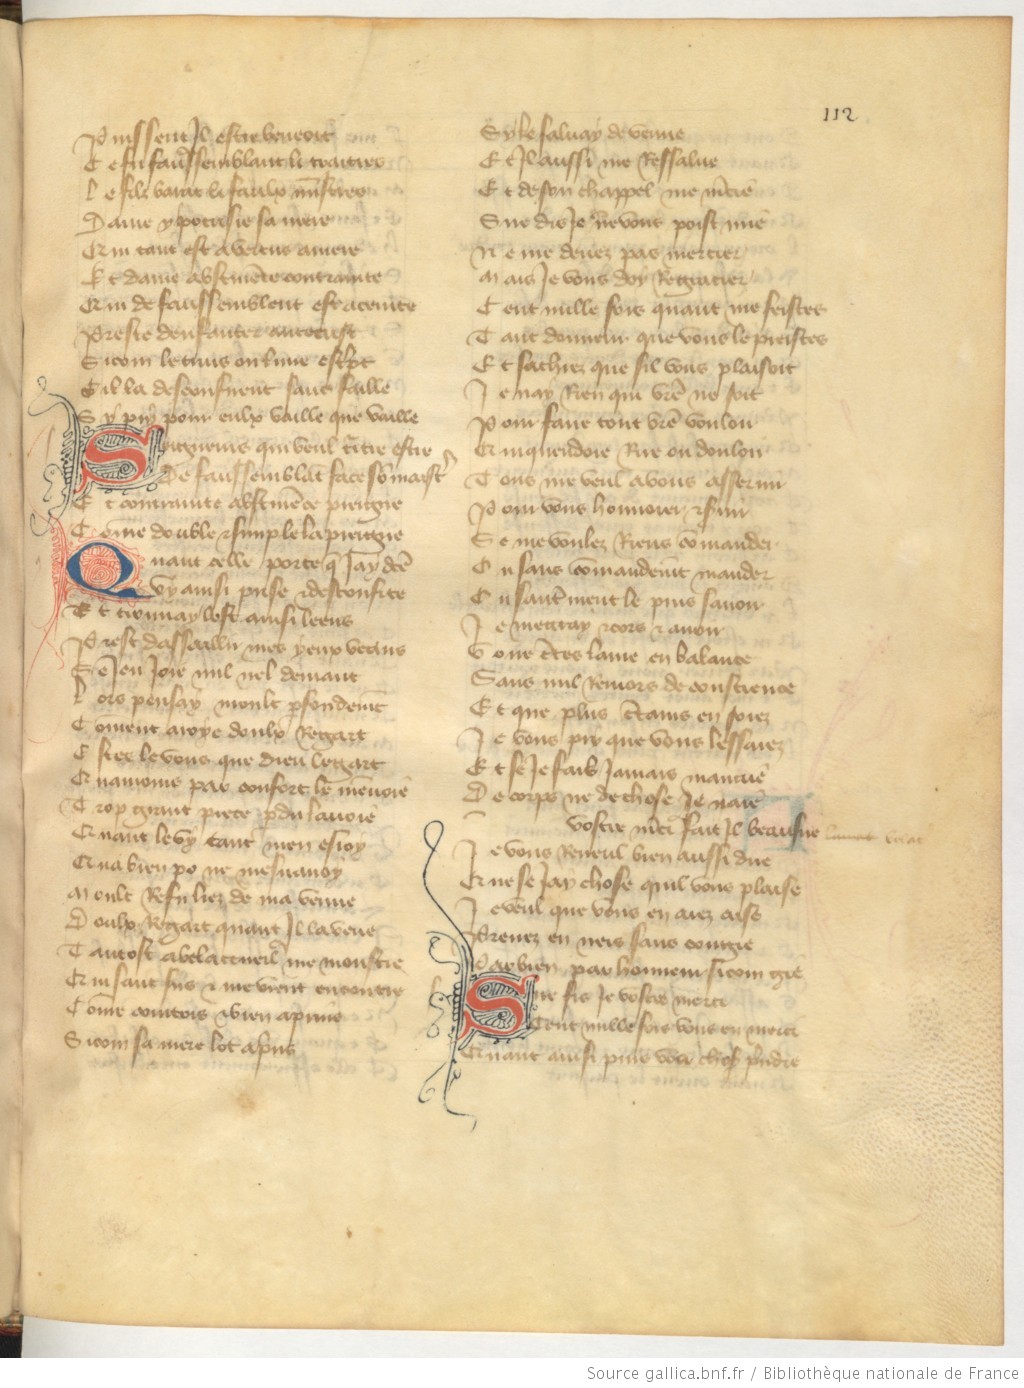 112
Puissent Il estre benoit
Ce fu faulx semblant le traitres
Le filz barat le faulx menistres
Dame ypocrisie sa mere
Qui tant est a vertus amere
Et dame abstinence contrainte
Qui de faussemblent est ancainte
Preste denfanter
Sicom le truis on livre escript
Cil la desconfirent sans faille
Sy pry pour eulx vaille que vaille
Seigneurs qui veul traitre estre
De faussemblant face son maistre
Et contrainte abstinence preigne
Come double & simple la preigne
Quant celle porte que Jay dite
Vy ainsi prise & desconfite
Et trouvay lost ainsi leens
Prest dassaillir mes yeux veans
Se Jen Joie nul nel demant
Lors pensay moult parfondement
Coment aroye doulx Regart
Estes le vous que dieu le gart
Qu
Trop grant piece perdu lavoie
Quant le vy tant men esjoy
Qua bien po ne mesvanoy
Moult Refu liez de ma venue
Doulx Regart quant Il la veue
Tantost a bel acueil me monstre
Qui saut sus & me vient encontre
Come courtois & bien apris
Sicom sa mere lot apris
Sy le saluay de venue
Et Il aussi me Ressalue
Et de son chappel me mercie
Sire dis Je ne vous poist mie
Ne me devez pas mercier
Mais Je vous doy Regracier
Cent mille fois quant me feistes
Tant donneur que vous le preistes
Et sachiez que sil vous plaisoit
Je nay Rien qui vostre ne soit
Pour faire tout vostre vouloir
Qui quen doie Rire ou douloir
Tous me veul a vous asservir
Pour vous honnorer & servir
Se me voulez Riens commander
Ou sans commandement mander
Ou sautrement le puis savoir
Je mettray & cors & avoir
Voire certes lame en balance
Sans nul Remors de conscience
Et que plus certains en soiez
Je vous pry que vous lessaiez
Et se Je fail Jamais
De corps ne de chose Je naie
Vostre merci fait Il beau sire
Je vous Reveul bien aussi dire
Que se Jay chose quil vous plaise
Je veul que vous en aiez aise
Prenez en neis sans congie
Par bien par honneur sicom gie
Sire fis Je vostre merci
Cent mille fois vous en merci
Quant ainsi puis voz choses prendre
Source gallica.bnf.fr / Bibliothèque nationale de France